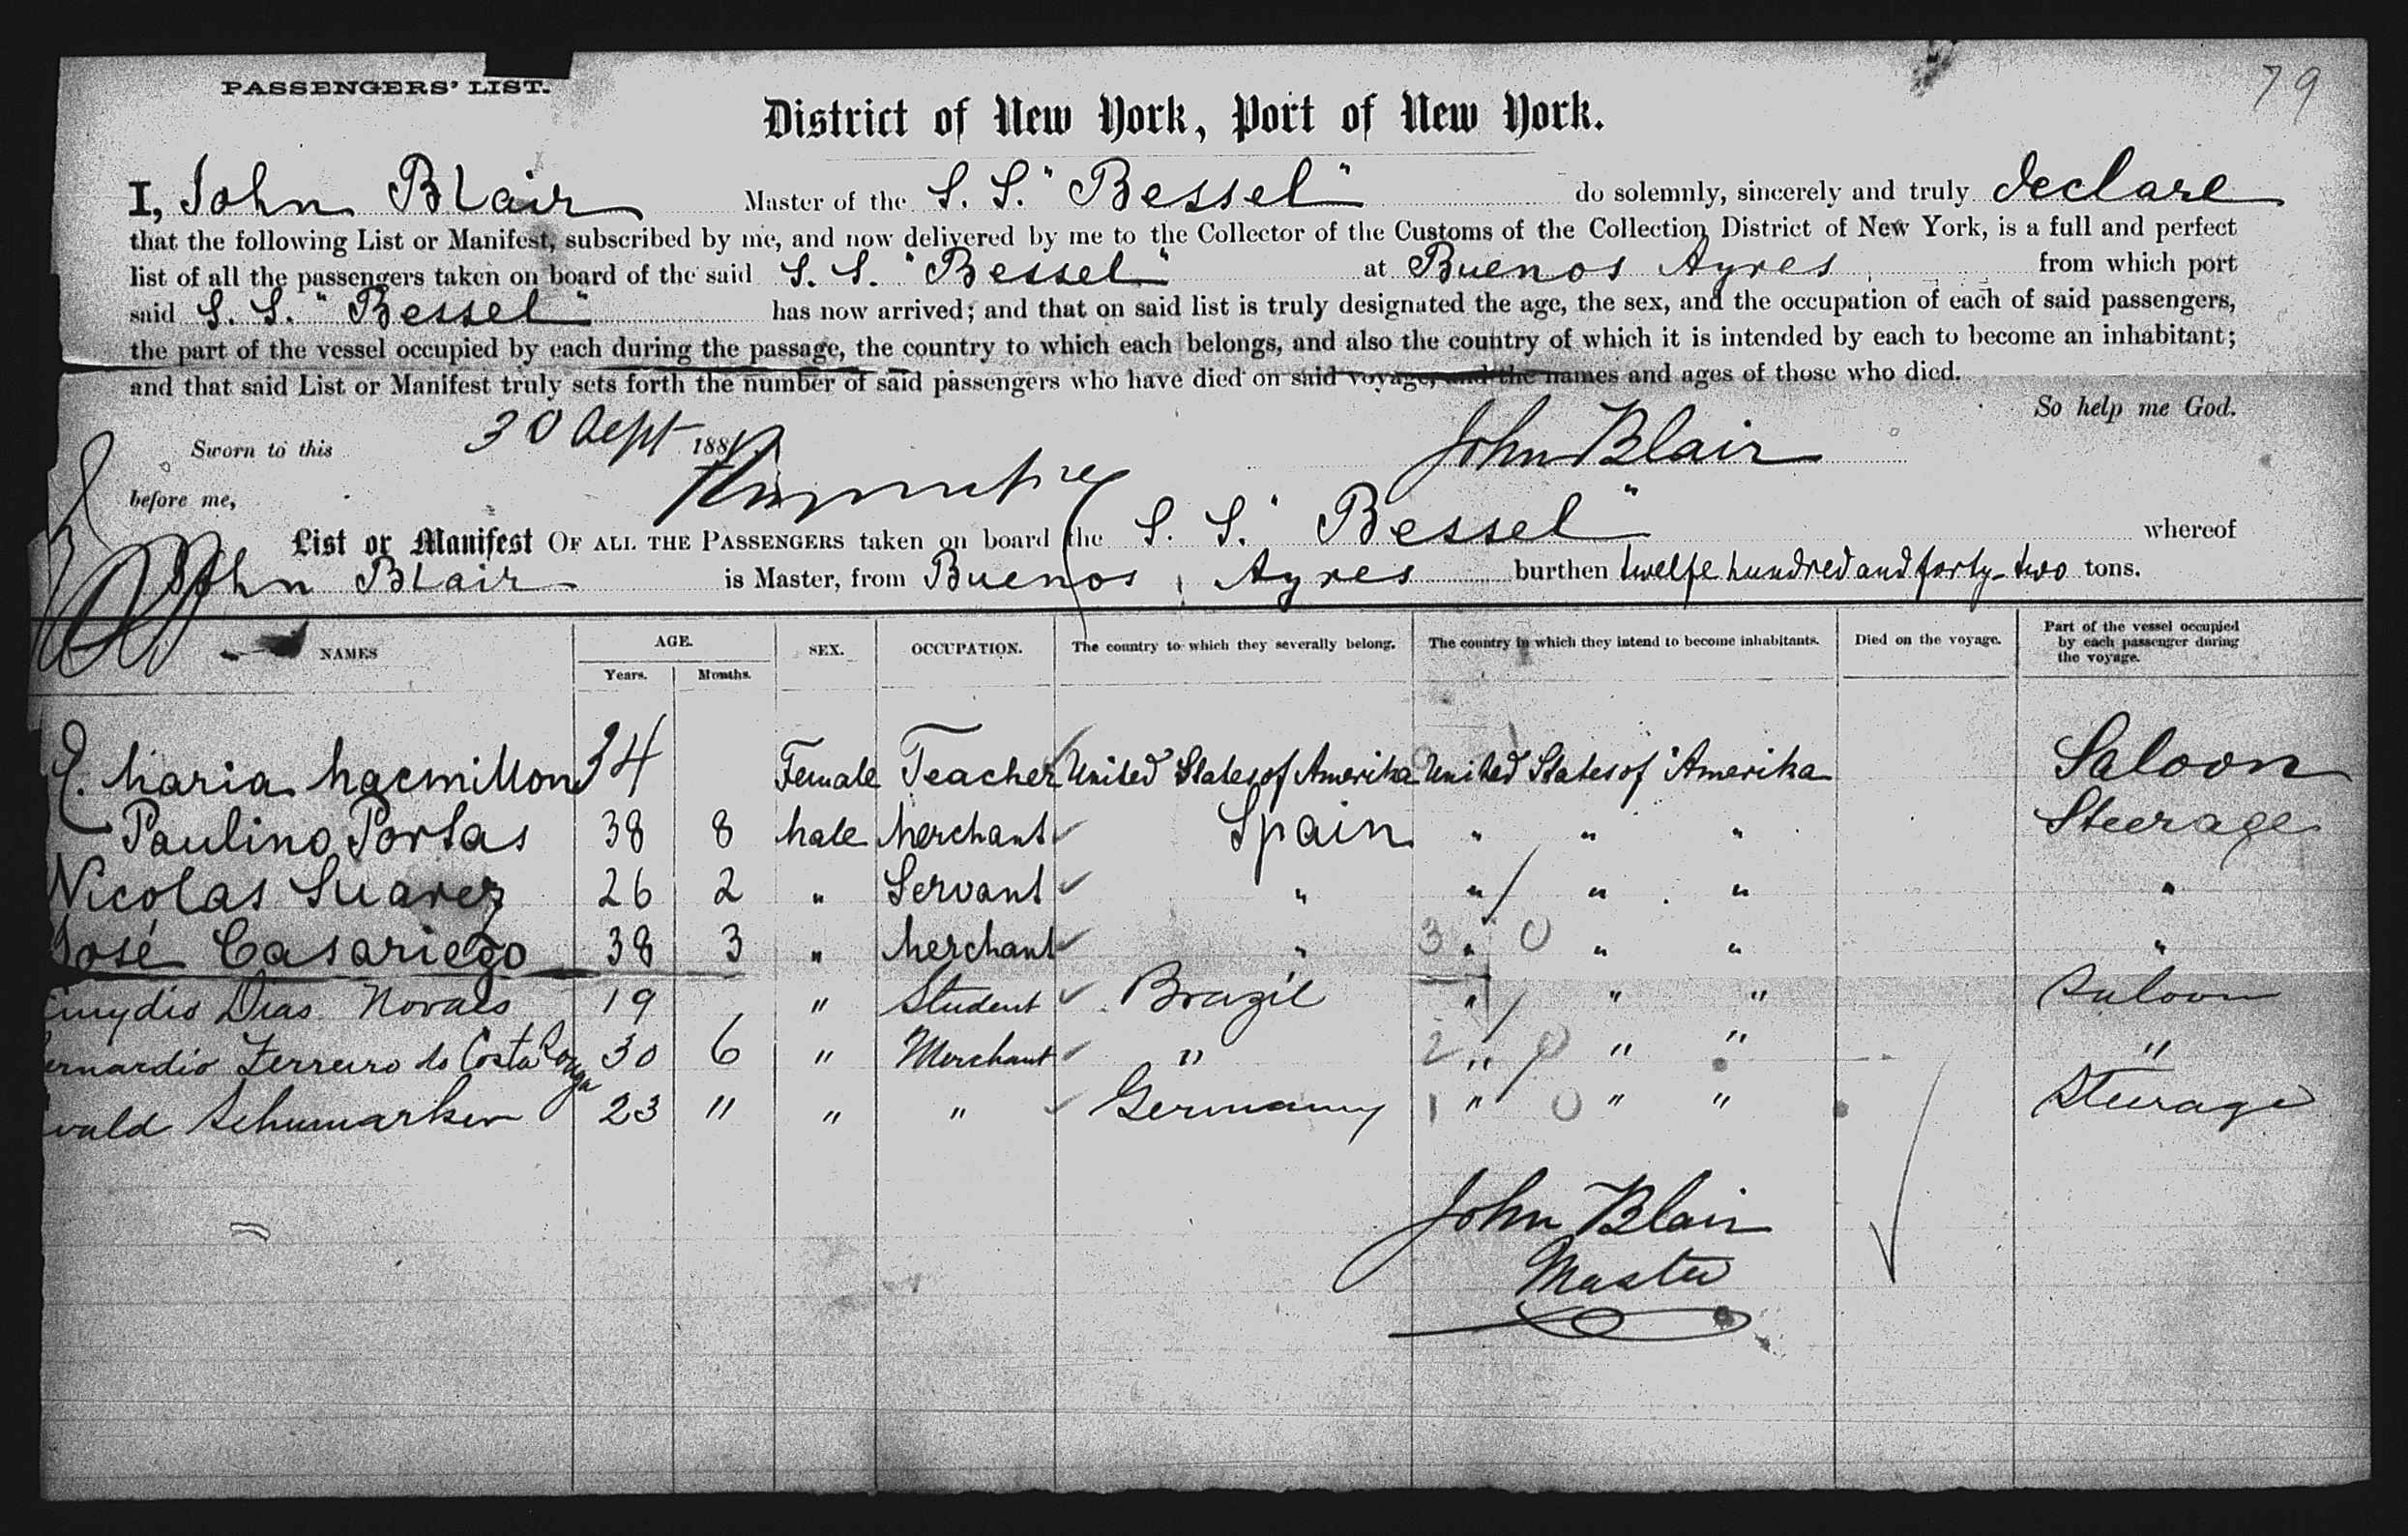 79
PASSENGERS' LIST.
District of New York, Port of New York.
I, John Blair Master of the S. S. "Bessel" do solemnly, sincerely and truly declare
that the following List or Manifest, subscribed by me, and now delivered by me to the Collector of the Customs of the Collection District of New York, is a full and perfect
list of all the passengers taken on board of the said S. S. "Bessel" at Buenos Ayres from which port
said S. S. "Bessel" has now arrived; and that on said list is truly designated the age, the sex, and the occupation of each of said passengers,
the part of the vessel occupied by each during the passage, the country to which each belongs, and also the country of which it is intended by each to become an inhabitant;
and that said List or Manifest truly sets forth the number of said passengers who have died on said voyage, and the names and ages of those who died.
So help me God.
Sworn to this 30 Sept 188 John Blair
before me,
List or Manifest OF ALL THE PASSENGERS taken on board the S. S. "Bessel" whereof
John Blair is Master, from Buenos Ayres burthen twelfe hundred and forty-two tons.
NAMES AGE. Years. Months. SEX. OCCUPATION. The country to which they severally belong. The country in which they intend to become inhabitants. Died on the voyage. Part of the vessel occupied by each passenger during the voyage.
E. Maria Macmillon 34 Female Teacher United States of Amerika United States of Amerika Saloon
Paulino Portas 38 8 Male Merchant Spain " " " Steerage
Nicolas Suarez 26 2 " Servant " " " " "
José Casariego 38 3 " Merchant " 3 " 0 " " "
Dias Novaes 19 " Student Brazil " " " Saloon
ernardio Ferreiro do Costa 30 6 " Merchant " 2 " 0 " " "
wald 23 " " " Germany 1 " 0 " " Steerage
John Blair
Master